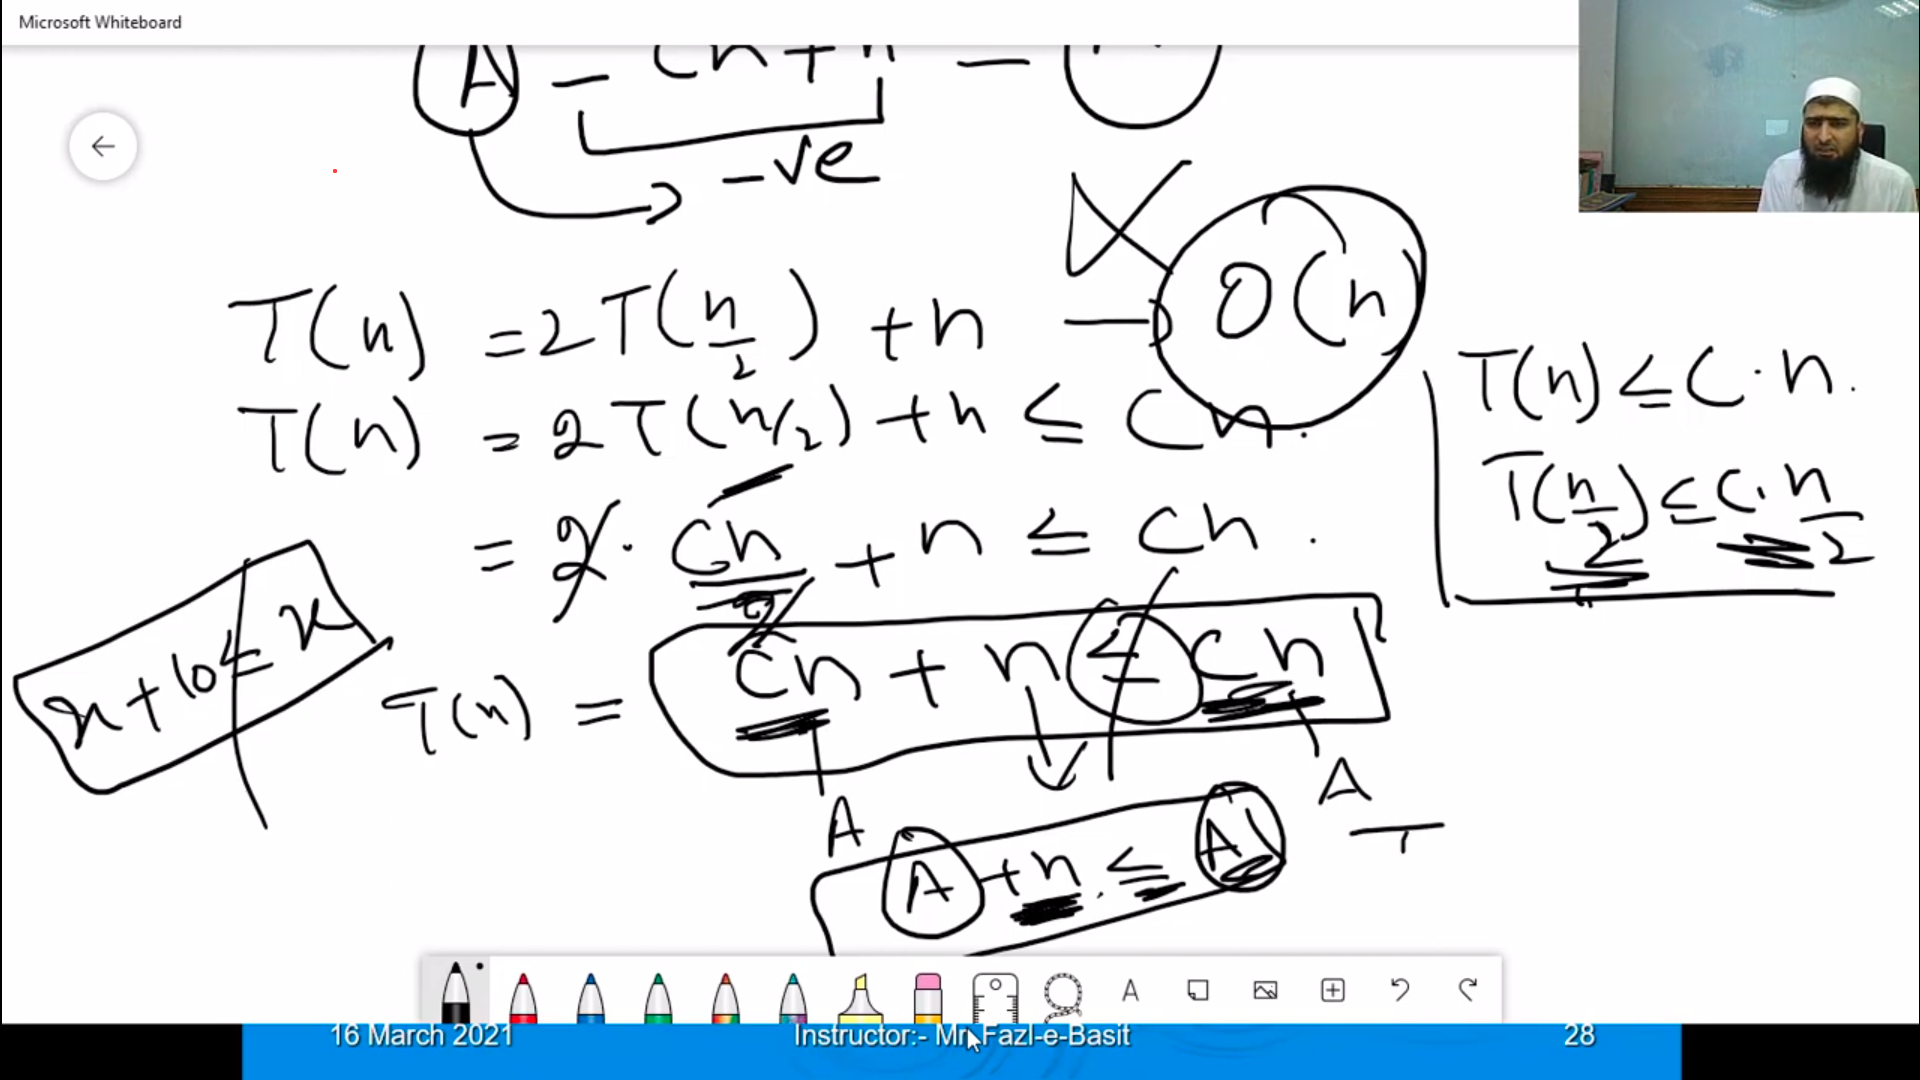 Microsoft Whiteboard
A - cn + n -
-ve
T(n) = 2T(n/2) + n → O(n)
T(n) = 2T(n/2) + n ≤ Cn.
= 2 · Cn/2 + n ≤ Cn.
T(n) = Cn + n ≤ Cn
A
A
A + n ≤ A
x + 10 ≤ x
T(n) ≤ C · n.
T(n/2) ≤ C · n/2
16 March 2021
Instructor:- Mr. Fazl-e-Basit
28